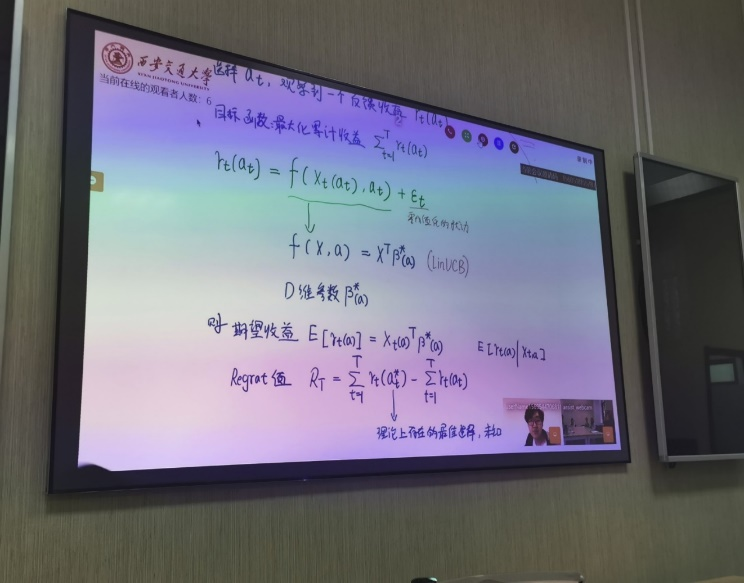 西安交通大学
XI'AN JIAOTONG UNIVERSITY
当前在线的观看者人数: 6
选择 at, 观察到一个反馈收益 rt(at)
目标函数:最大化累计收益 ∑_{t=1}^{T} rt(at)
rt(at) = f(Xt(at), at) + εt
f(x, a) = X^T β*(a) (LinUCB)
D维参数 β*(a)
时 期望收益 E[rt(a)] = Xt(a)^T β*(a) E[rt(a)|Xt,a]
Regrat值 RT = ∑_{t=1}^{T} rt(at*) - ∑_{t=1}^{T} rt(at)
理论上存在的最佳选择, 未知